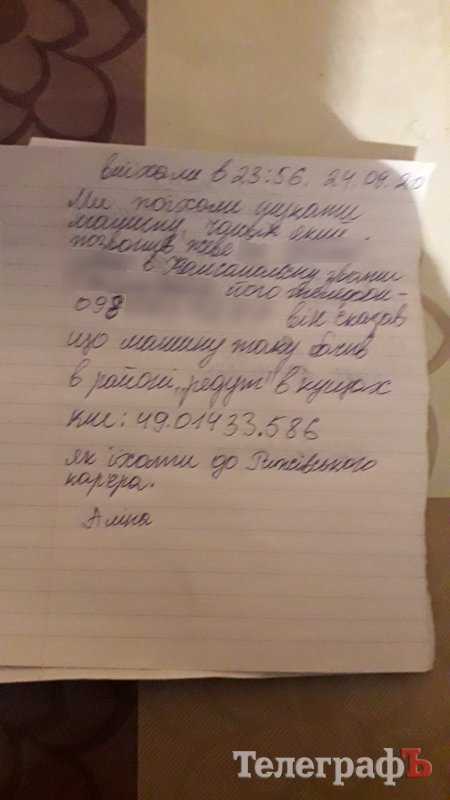 виїхали в 23:56. 24.09.20
Ми поїхали шукати
машину, чоловік який
позвонив живе
в Комсомольську звати
його телефон-
098 він сказав
що машину таку бачив
в районі „редут" в кущах
кмс: 49.01433.586
як їхати до Рижівського
кар'єра.
Аліна
ТелеграфЪ